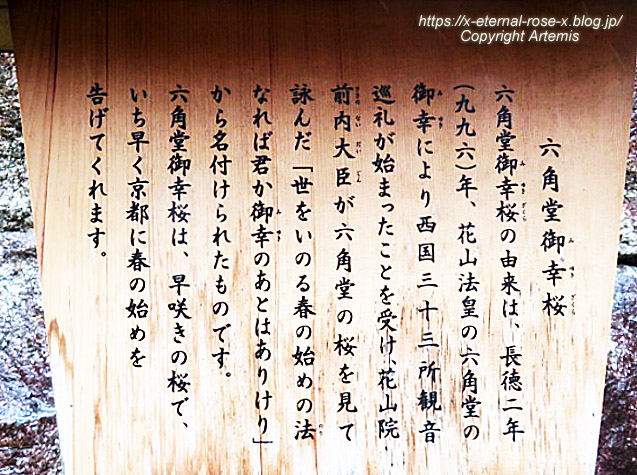 https://x-eternal-rose-x.blog.jp/
Copyright Artemis
六角堂御幸桜
六角堂御幸桜の由来は、長徳二年
(九九六)年、花山法皇の六角堂の
御幸により西国三十三所観音
巡礼が始まったことを受け、花山院・
前内大臣が六角堂の桜を見て
詠んだ「世をいのる春の始めの法
なれば君か御幸のあとはありけり」
から名付けられたものです。
六角堂御幸桜は、早咲きの桜で、
いち早く京都に春の始めを
告げてくれます。